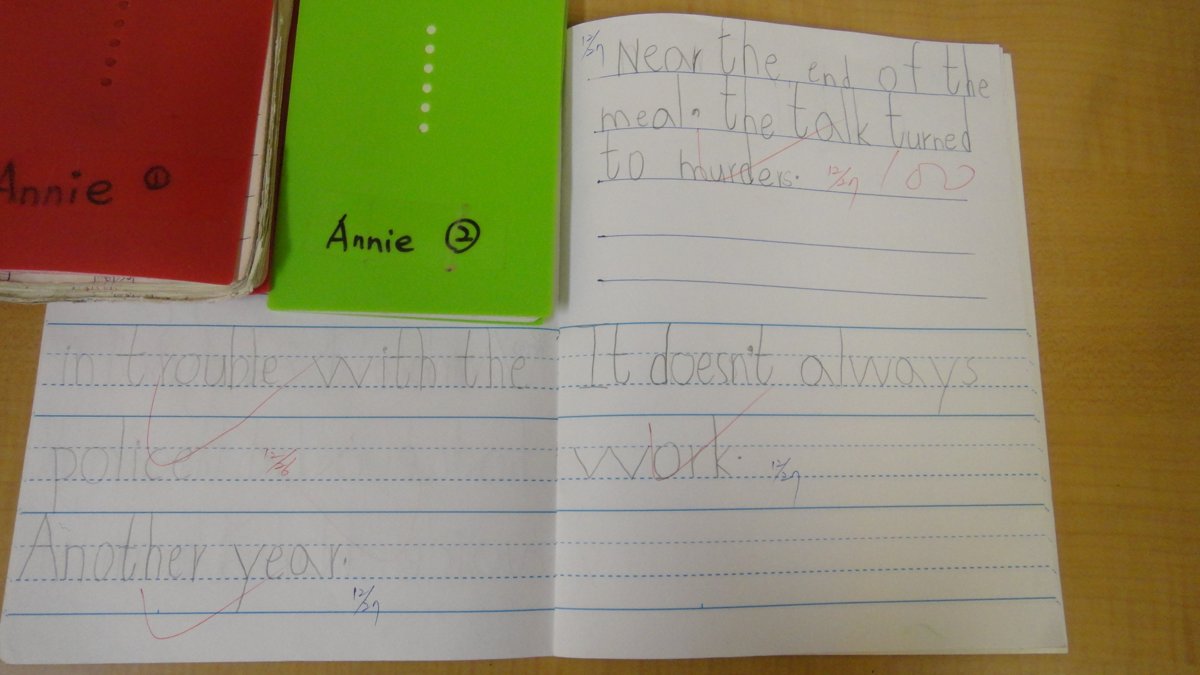 Annie ①
Annie ②
12/27
Near the end of the
meal, the talk turned
to murders.
12/27 100
in trouble with the
police
12/26
Another year.
12/27
It doesn't always
work.
12/27